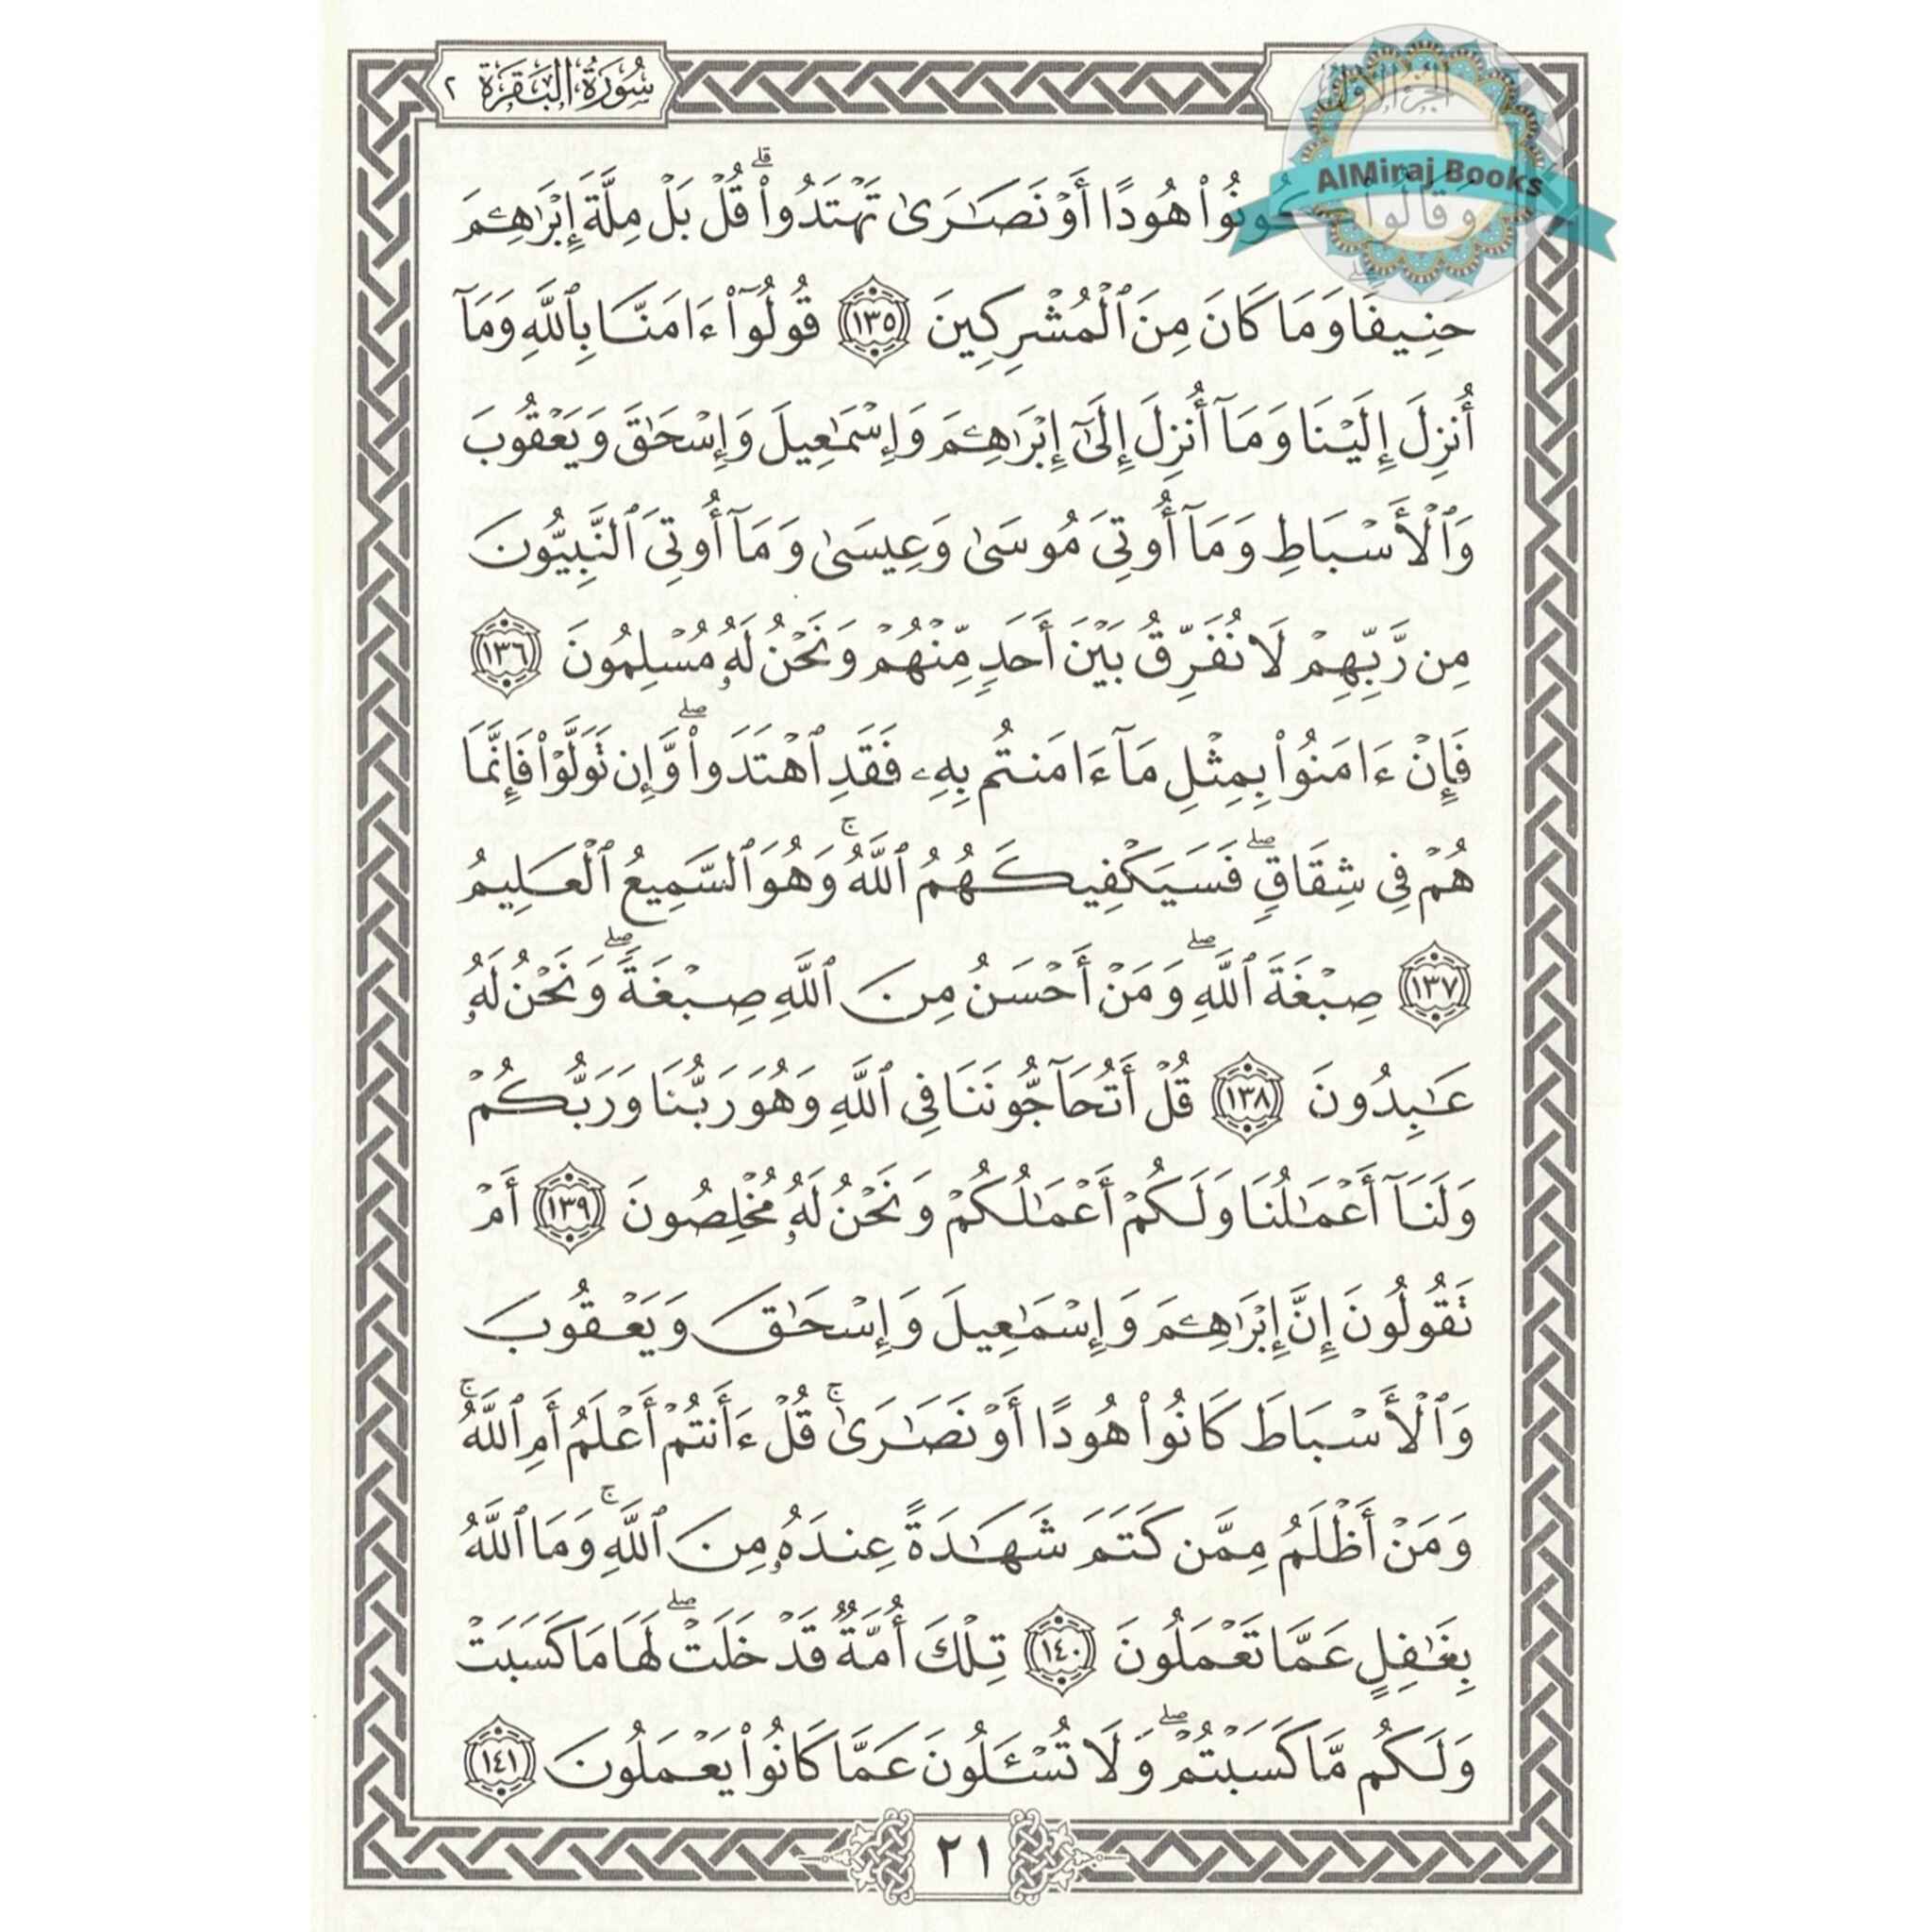 سُورَةُ البَقَرَةِ ٢
الجُزءُ الأوّل
AlMiraj Books
وَقَالُوا۟ كُونُوا۟ هُودًا أَوْ نَصَٰرَىٰ تَهْتَدُوا۟ ۗ قُلْ بَلْ مِلَّةَ إِبْرَٰهِـۧمَ
حَنِيفًا وَمَا كَانَ مِنَ ٱلْمُشْرِكِينَ ١٣٥ قُولُوٓا۟ ءَامَنَّا بِٱللَّهِ وَمَآ
أُنزِلَ إِلَيْنَا وَمَآ أُنزِلَ إِلَىٰٓ إِبْرَٰهِـۧمَ وَإِسْمَٰعِيلَ وَإِسْحَٰقَ وَيَعْقُوبَ
وَٱلْأَسْبَاطِ وَمَآ أُوتِىَ مُوسَىٰ وَعِيسَىٰ وَمَآ أُوتِىَ ٱلنَّبِيُّونَ
مِن رَّبِّهِمْ لَا نُفَرِّقُ بَيْنَ أَحَدٍ مِّنْهُمْ وَنَحْنُ لَهُۥ مُسْلِمُونَ ١٣٦
فَإِنْ ءَامَنُوا۟ بِمِثْلِ مَآ ءَامَنتُم بِهِۦ فَقَدِ ٱهْتَدَوا۟ ۖ وَّإِن تَوَلَّوْا۟ فَإِنَّمَا
هُمْ فِى شِقَاقٍ ۖ فَسَيَكْفِيكَهُمُ ٱللَّهُ ۚ وَهُوَ ٱلسَّمِيعُ ٱلْعَلِيمُ
١٣٧ صِبْغَةَ ٱللَّهِ ۖ وَمَنْ أَحْسَنُ مِنَ ٱللَّهِ صِبْغَةً ۖ وَنَحْنُ لَهُۥ
عَٰبِدُونَ ١٣٨ قُلْ أَتُحَآجُّونَنَا فِى ٱللَّهِ وَهُوَ رَبُّنَا وَرَبُّكُمْ
وَلَنَآ أَعْمَٰلُنَا وَلَكُمْ أَعْمَٰلُكُمْ وَنَحْنُ لَهُۥ مُخْلِصُونَ ١٣٩ أَمْ
تَقُولُونَ إِنَّ إِبْرَٰهِـۧمَ وَإِسْمَٰعِيلَ وَإِسْحَٰقَ وَيَعْقُوبَ
وَٱلْأَسْبَاطَ كَانُوا۟ هُودًا أَوْ نَصَٰرَىٰ ۗ قُلْ ءَأَنتُمْ أَعْلَمُ أَمِ ٱللَّهُ ۗ
وَمَنْ أَظْلَمُ مِمَّن كَتَمَ شَهَٰدَةً عِندَهُۥ مِنَ ٱللَّهِ ۗ وَمَا ٱللَّهُ
بِغَٰفِلٍ عَمَّا تَعْمَلُونَ ١٤٠ تِلْكَ أُمَّةٌ قَدْ خَلَتْ ۖ لَهَا مَا كَسَبَتْ
وَلَكُم مَّا كَسَبْتُمْ ۖ وَلَا تُسْـَٔلُونَ عَمَّا كَانُوا۟ يَعْمَلُونَ ١٤١
٢١